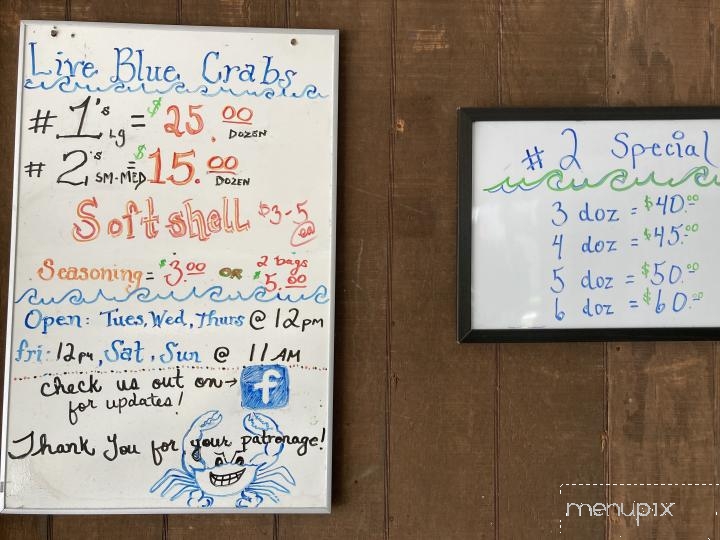 Live Blue Crabs
# 1's Lg = $25.00 DOZEN
# 2's SM-MED = $15.00 DOZEN
Softshell $3-5 ea
Seasoning = $3.00 OR 2 bags $5.00
Open: Tues, Wed, Thurs @ 12pm
fri: 12pm, Sat, Sun @ 11AM
check us out on→ f
for updates!
Thank You for your patronage!
# 2 Special
3 doz = $40.00
4 doz = $45.00
5 doz = $50.00
6 doz = $60.00
menupix